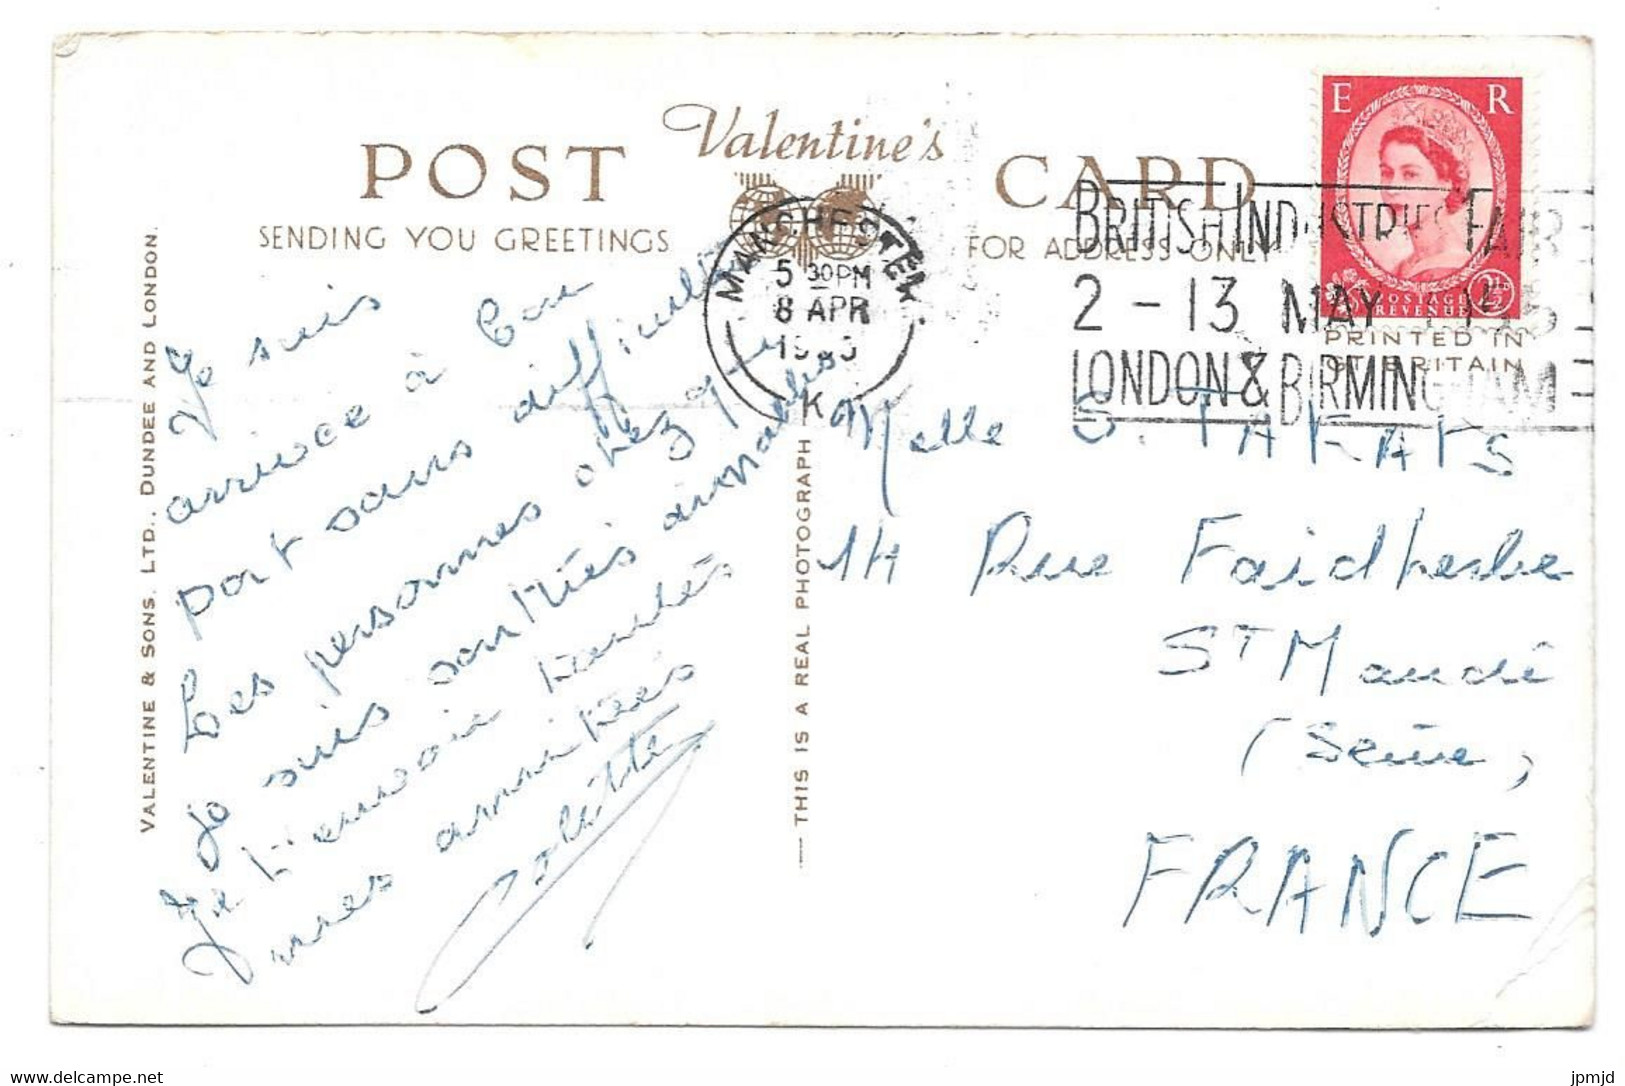 POST Valentine's CARD
SENDING YOU GREETINGS
FOR ADDRESS ONLY
MANCHESTER
5 30 PM
8 APR
K
BRITISH INDUSTRIES FAIR
2 - 13 MAY
LONDON & BIRMINGHAM
E R
POSTAGE
REVENUE
2½D
PRINTED IN
GT BRITAIN
VALENTINE & SONS, LTD., DUNDEE AND LONDON.
THIS IS A REAL PHOTOGRAPH
Je suis
arrivée à bon
port sans difficulté
Les personnes chez qui
je suis sont très aimables
Je t'envoie toutes
mes amitiés
Melle S. TAKATS
14 Rue Faidherbe
ST Mandé
(Seine)
FRANCE
jpmjd
www.delcampe.net